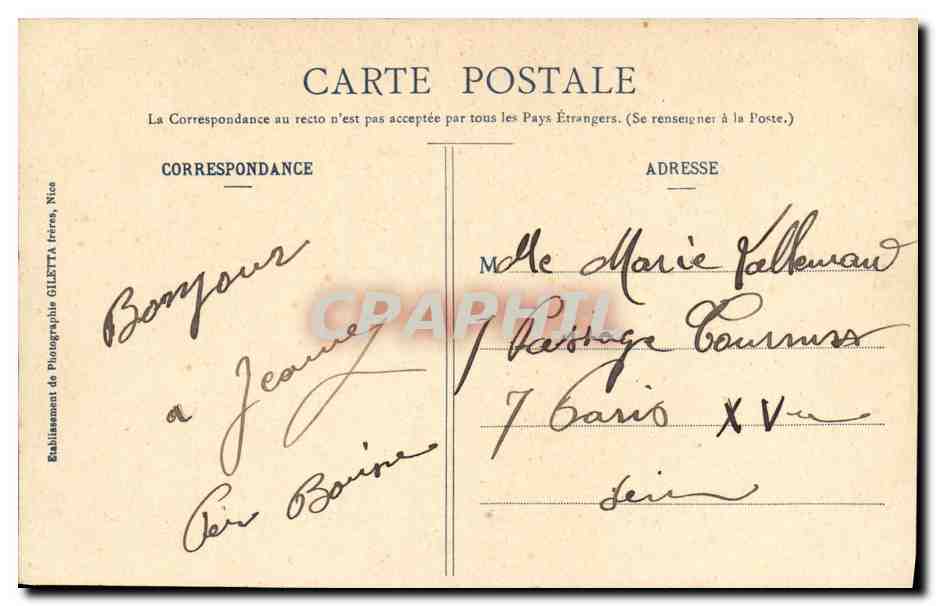 CARTE POSTALE
La Correspondance au recto n'est pas acceptée par tous les Pays Étrangers. (Se renseigner à la Poste.)
CORRESPONDANCE
ADRESSE
Etablissement de Photographie GILETTA frères, Nice
Bonjour
a Jeanne
CPAPHIL
Mlle Marie
7 Passage
7 Paris XVe
Seine